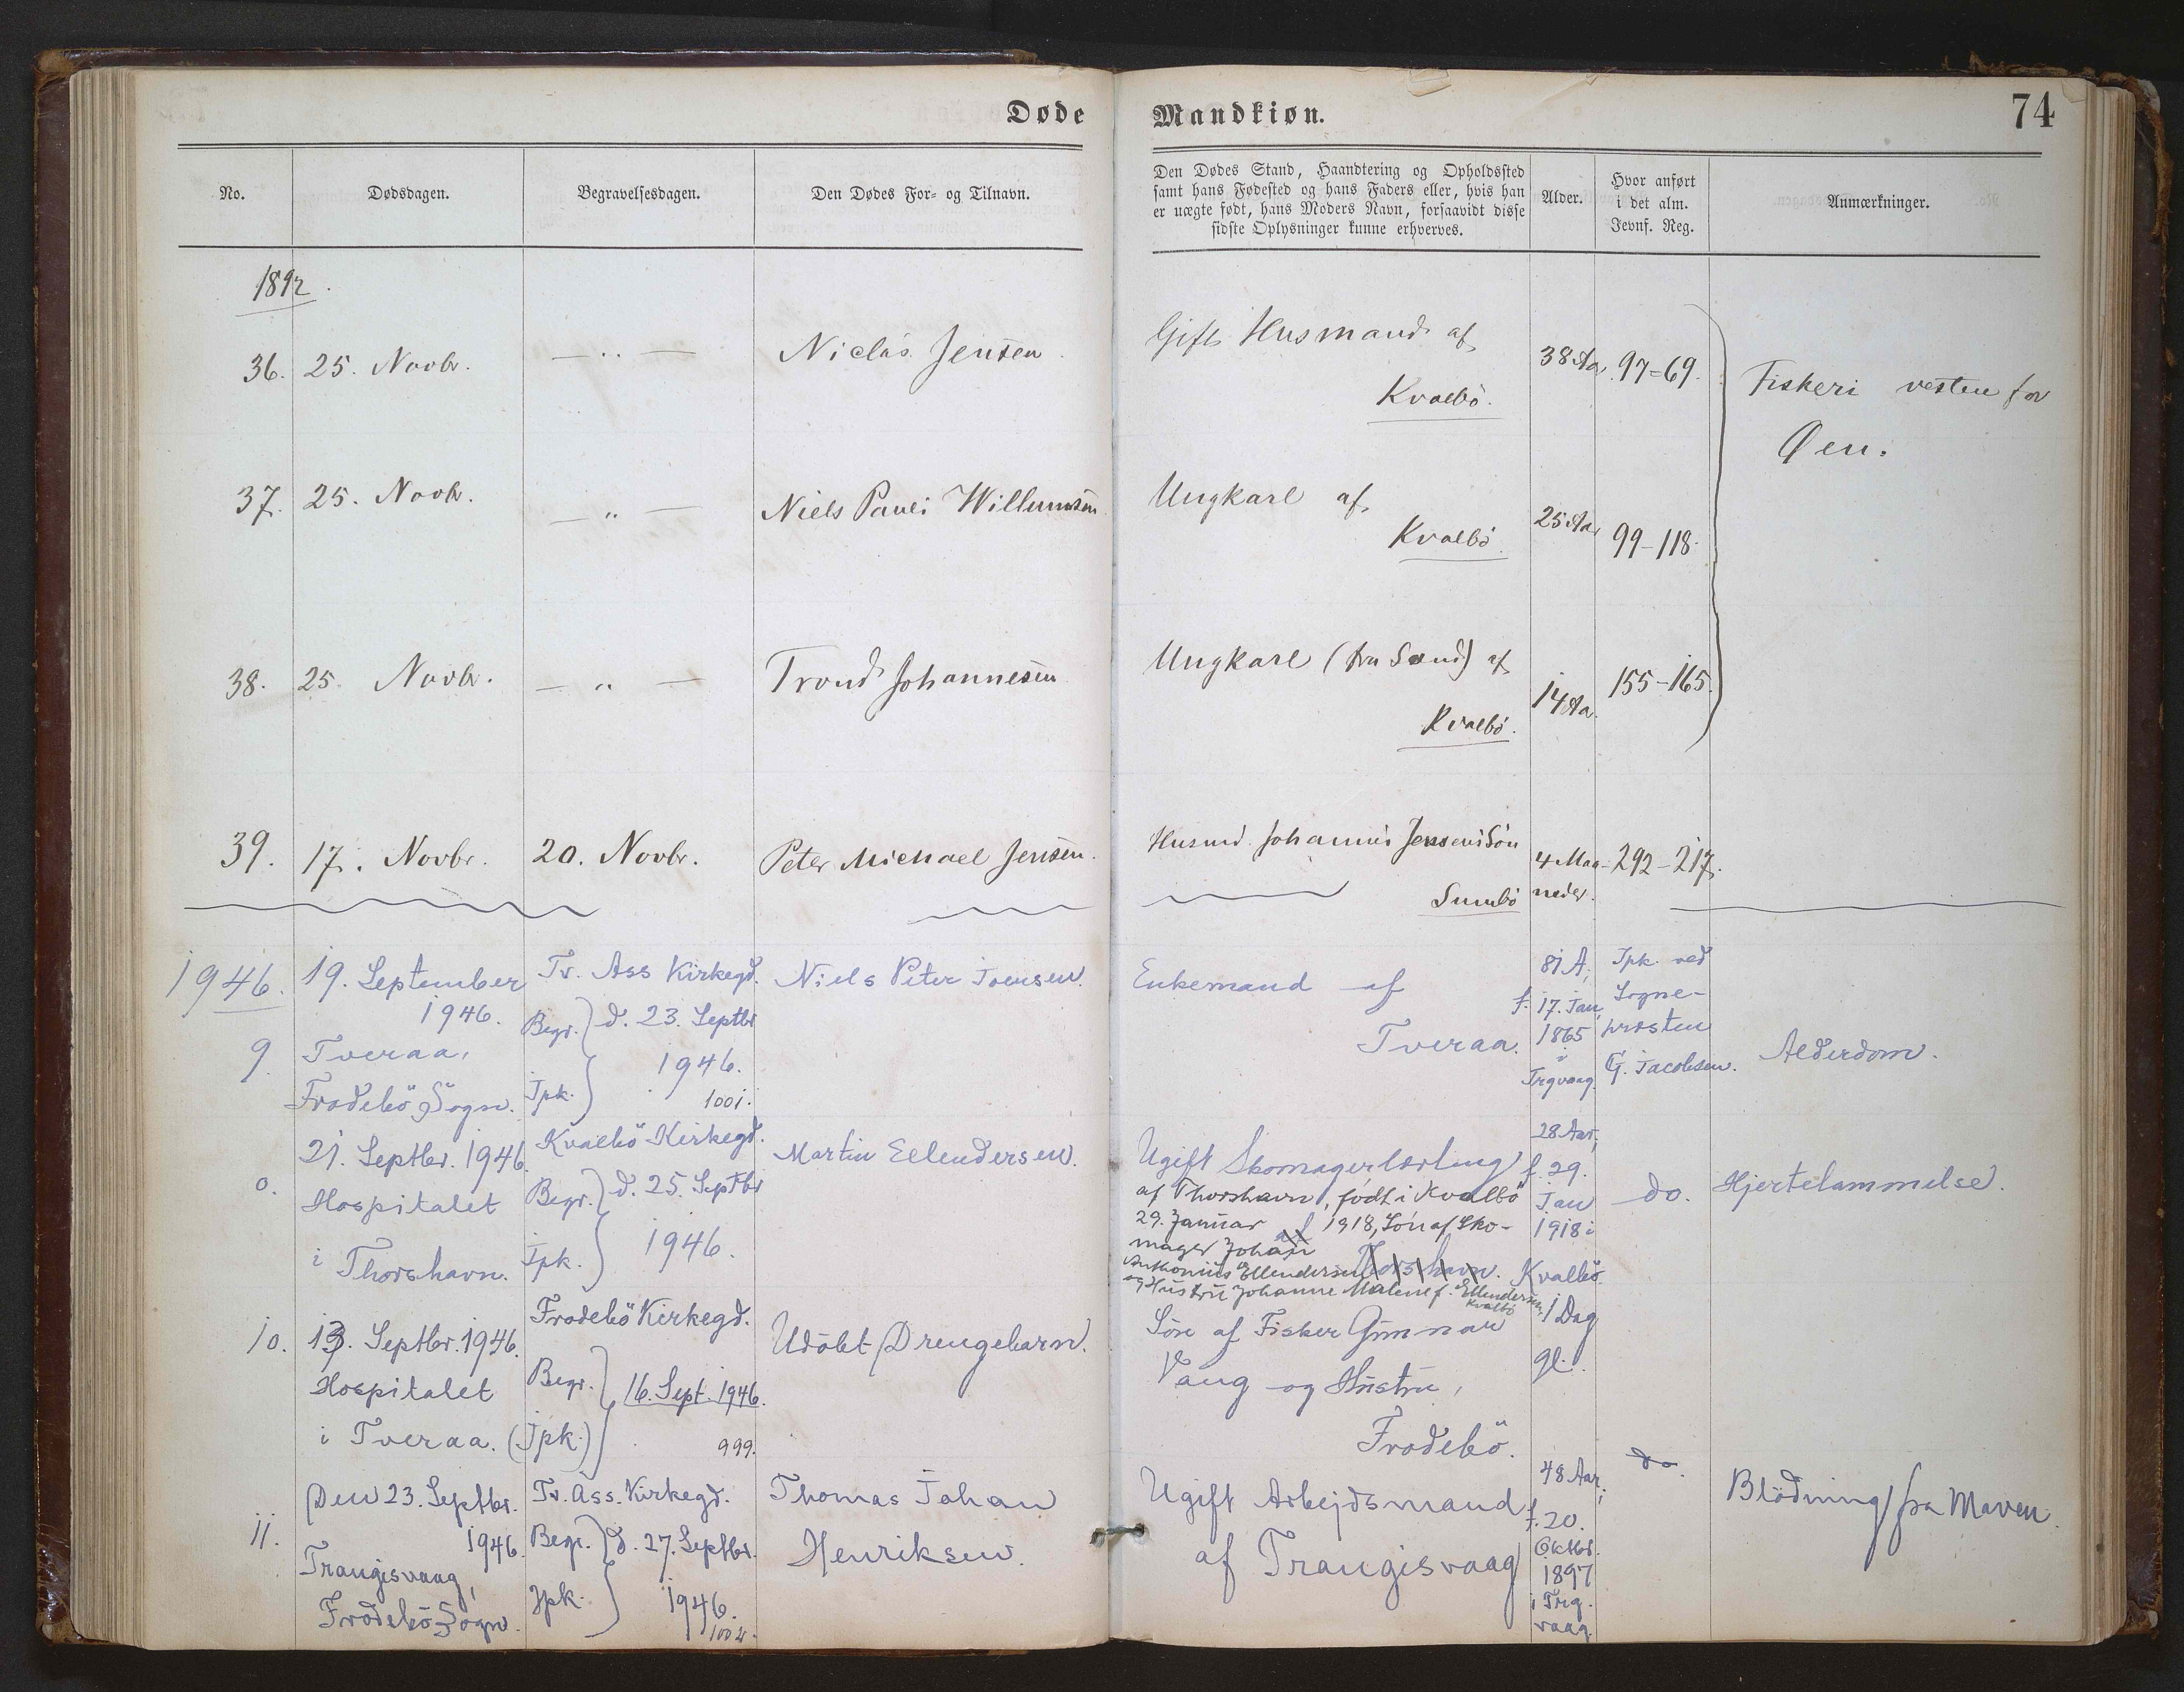 Døde
Mandkiøn.
74
No.
Dødsdagen.
Begravelsesdagen.
Den Dødes For- og Tilnavn.
Den Dødes Stand, Haandtering og Opholdssted
samt hans Fødested og hans Faders eller, hvis han
er uægte født, hans Moders Navn, forsaavidt disse
sidste Oplysninger kunne erhverves.
Alder.
Hvor anført
i det alm.
Jevnf. Reg.
Anmærkninger.
1892.
36. 25. Novbr. — " — Niclas Jensen
Gift Husmand af
Kvalbö.
38 Aa. 97-69.
Fiskeri vesten for
Øen.
37. 25. Novb. — " — Niels Pauli Willumsen
Ungkarl af
Kvalbö
25 Aa. 99-118.
38. 25. Novbr. — " — Trond Johannesen
Ungkarl (fra Sand) af
Kvalbö.
14 Aa. 155-165.
39. 17. Novbr. 20. Novbr. Peter Michael Jensen.
Husmd. Johannis Jensens Sön
Sumbö
4 Maa-
neder.
292-217.
1946.
19. September
1946.
9. Tveraa,
Frodebö Sogn.
Tv. Ass Kirkegd.
Begr. d. 23. Septbr
1946.
Jpk.
1001.
Niels Peter Joensen.
Enkemand af
Tveraa.
81 A,
f. 17. Jan,
1865
i
Trgvaag.
Jpk. ved
Sogne-
præsten
G. Jacobsen.
Alderdom.
21. Septbr. 1946
0. Hospitalet
i Thorshavn.
Kvalbö Kirkegd.
Begr. d. 25. Septbr
Jpk. 1946.
Martin Ellendersen.
Ugift Skomagerlærling
af Thorshavn, födt i Kvalbö
29. Januar 1918, Sön af Sko-
mager Johan
Antonius Ellendersen Torshavn.
og Hustru Johanne Malene f. Ellendersen,
Kvalbö
28 Aar,
f. 29.
Jan
1918 i
Kvalbö
do.
Hjertelammelse.
10. 13. Septbr. 1946.
Hospitalet
i Tveraa.
Frodebö Kirkegd.
Begr. 16. Sept. 1946.
(Jpk.)
999.
Udöbt Drengebarn.
Sön af Fisker Gunnar
Vang og Hustru,
Frodebö.
1 Dag
gl.
do.
Den 23. Septbr.
11. 1946.
Trangisvaag,
Frodebö Sogn.
Tv. Ass. Kirkegd.
Begr. d. 27. Septbr.
Jpk. 1946.
1002.
Thomas Johan
Henriksen.
Ugift Arbejdsmand
af Trangisvaag
48 Aar,
f. 20.
Oktbr.
1897
i Trg.
vaag.
Blödning fra Maven.